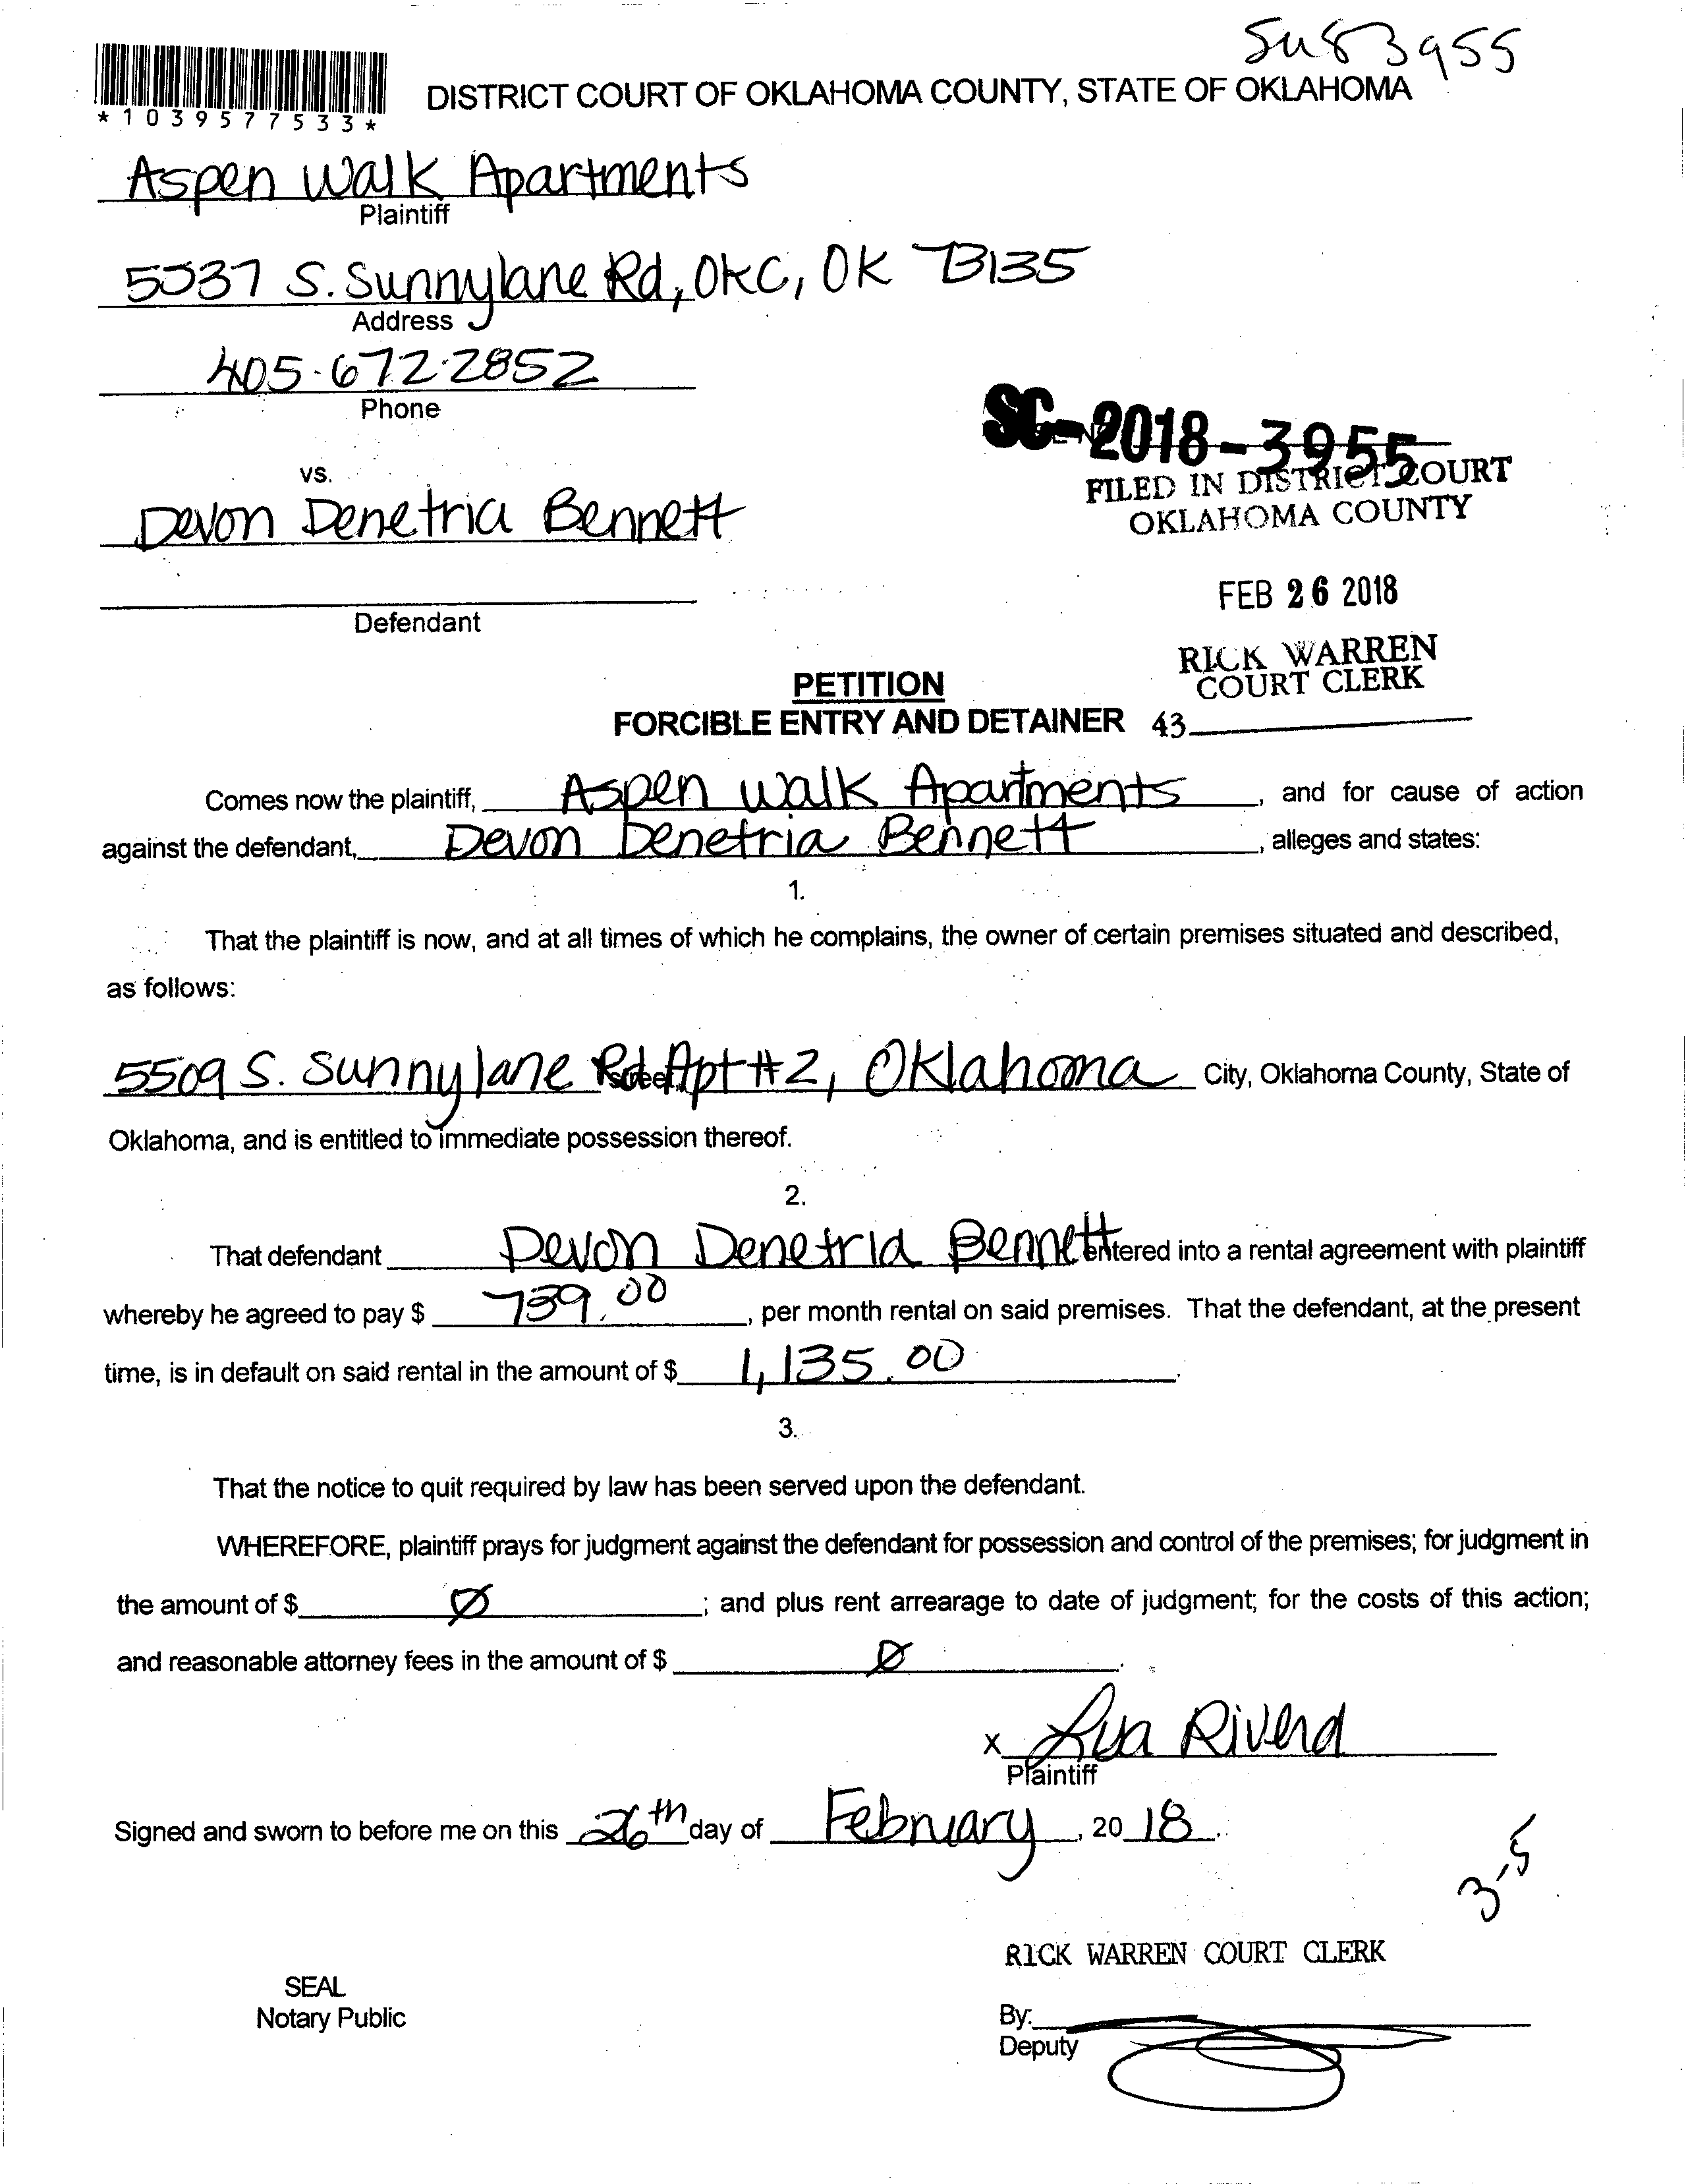 Su83955
*1039577533*
DISTRICT COURT OF OKLAHOMA COUNTY, STATE OF OKLAHOMA
Aspen Walk Apartments
Plaintiff
5537 S. Sunnylane Rd, OKC, OK 73135
Address
405-672-2852
Phone
SC-2018-3955
vs.
FILED IN DISTRICT COURT
OKLAHOMA COUNTY
Devon Denetria Bennett
FEB 26 2018
Defendant
RICK WARREN
COURT CLERK
PETITION
FORCIBLE ENTRY AND DETAINER 43
Comes now the plaintiff, Aspen Walk Apartments, and for cause of action
against the defendant, Devon Denetria Bennett, alleges and states:
1.
That the plaintiff is now, and at all times of which he complains, the owner of certain premises situated and described,
as follows:
5509 S. Sunnylane Rd Apt #2, Oklahoma City, Oklahoma County, State of
Oklahoma, and is entitled to immediate possession thereof.
2.
That defendant Devon Denetria Bennett entered into a rental agreement with plaintiff
whereby he agreed to pay $ 739.00, per month rental on said premises. That the defendant, at the present
time, is in default on said rental in the amount of $ 1,135.00.
3.
That the notice to quit required by law has been served upon the defendant.
WHEREFORE, plaintiff prays for judgment against the defendant for possession and control of the premises; for judgment in
the amount of $ Ø; and plus rent arrearage to date of judgment; for the costs of this action;
and reasonable attorney fees in the amount of $ Ø.
X Rivera
Plaintiff
Signed and sworn to before me on this 26th day of February, 2018.
3-5
RICK WARREN COURT CLERK
SEAL
Notary Public
By:
Deputy